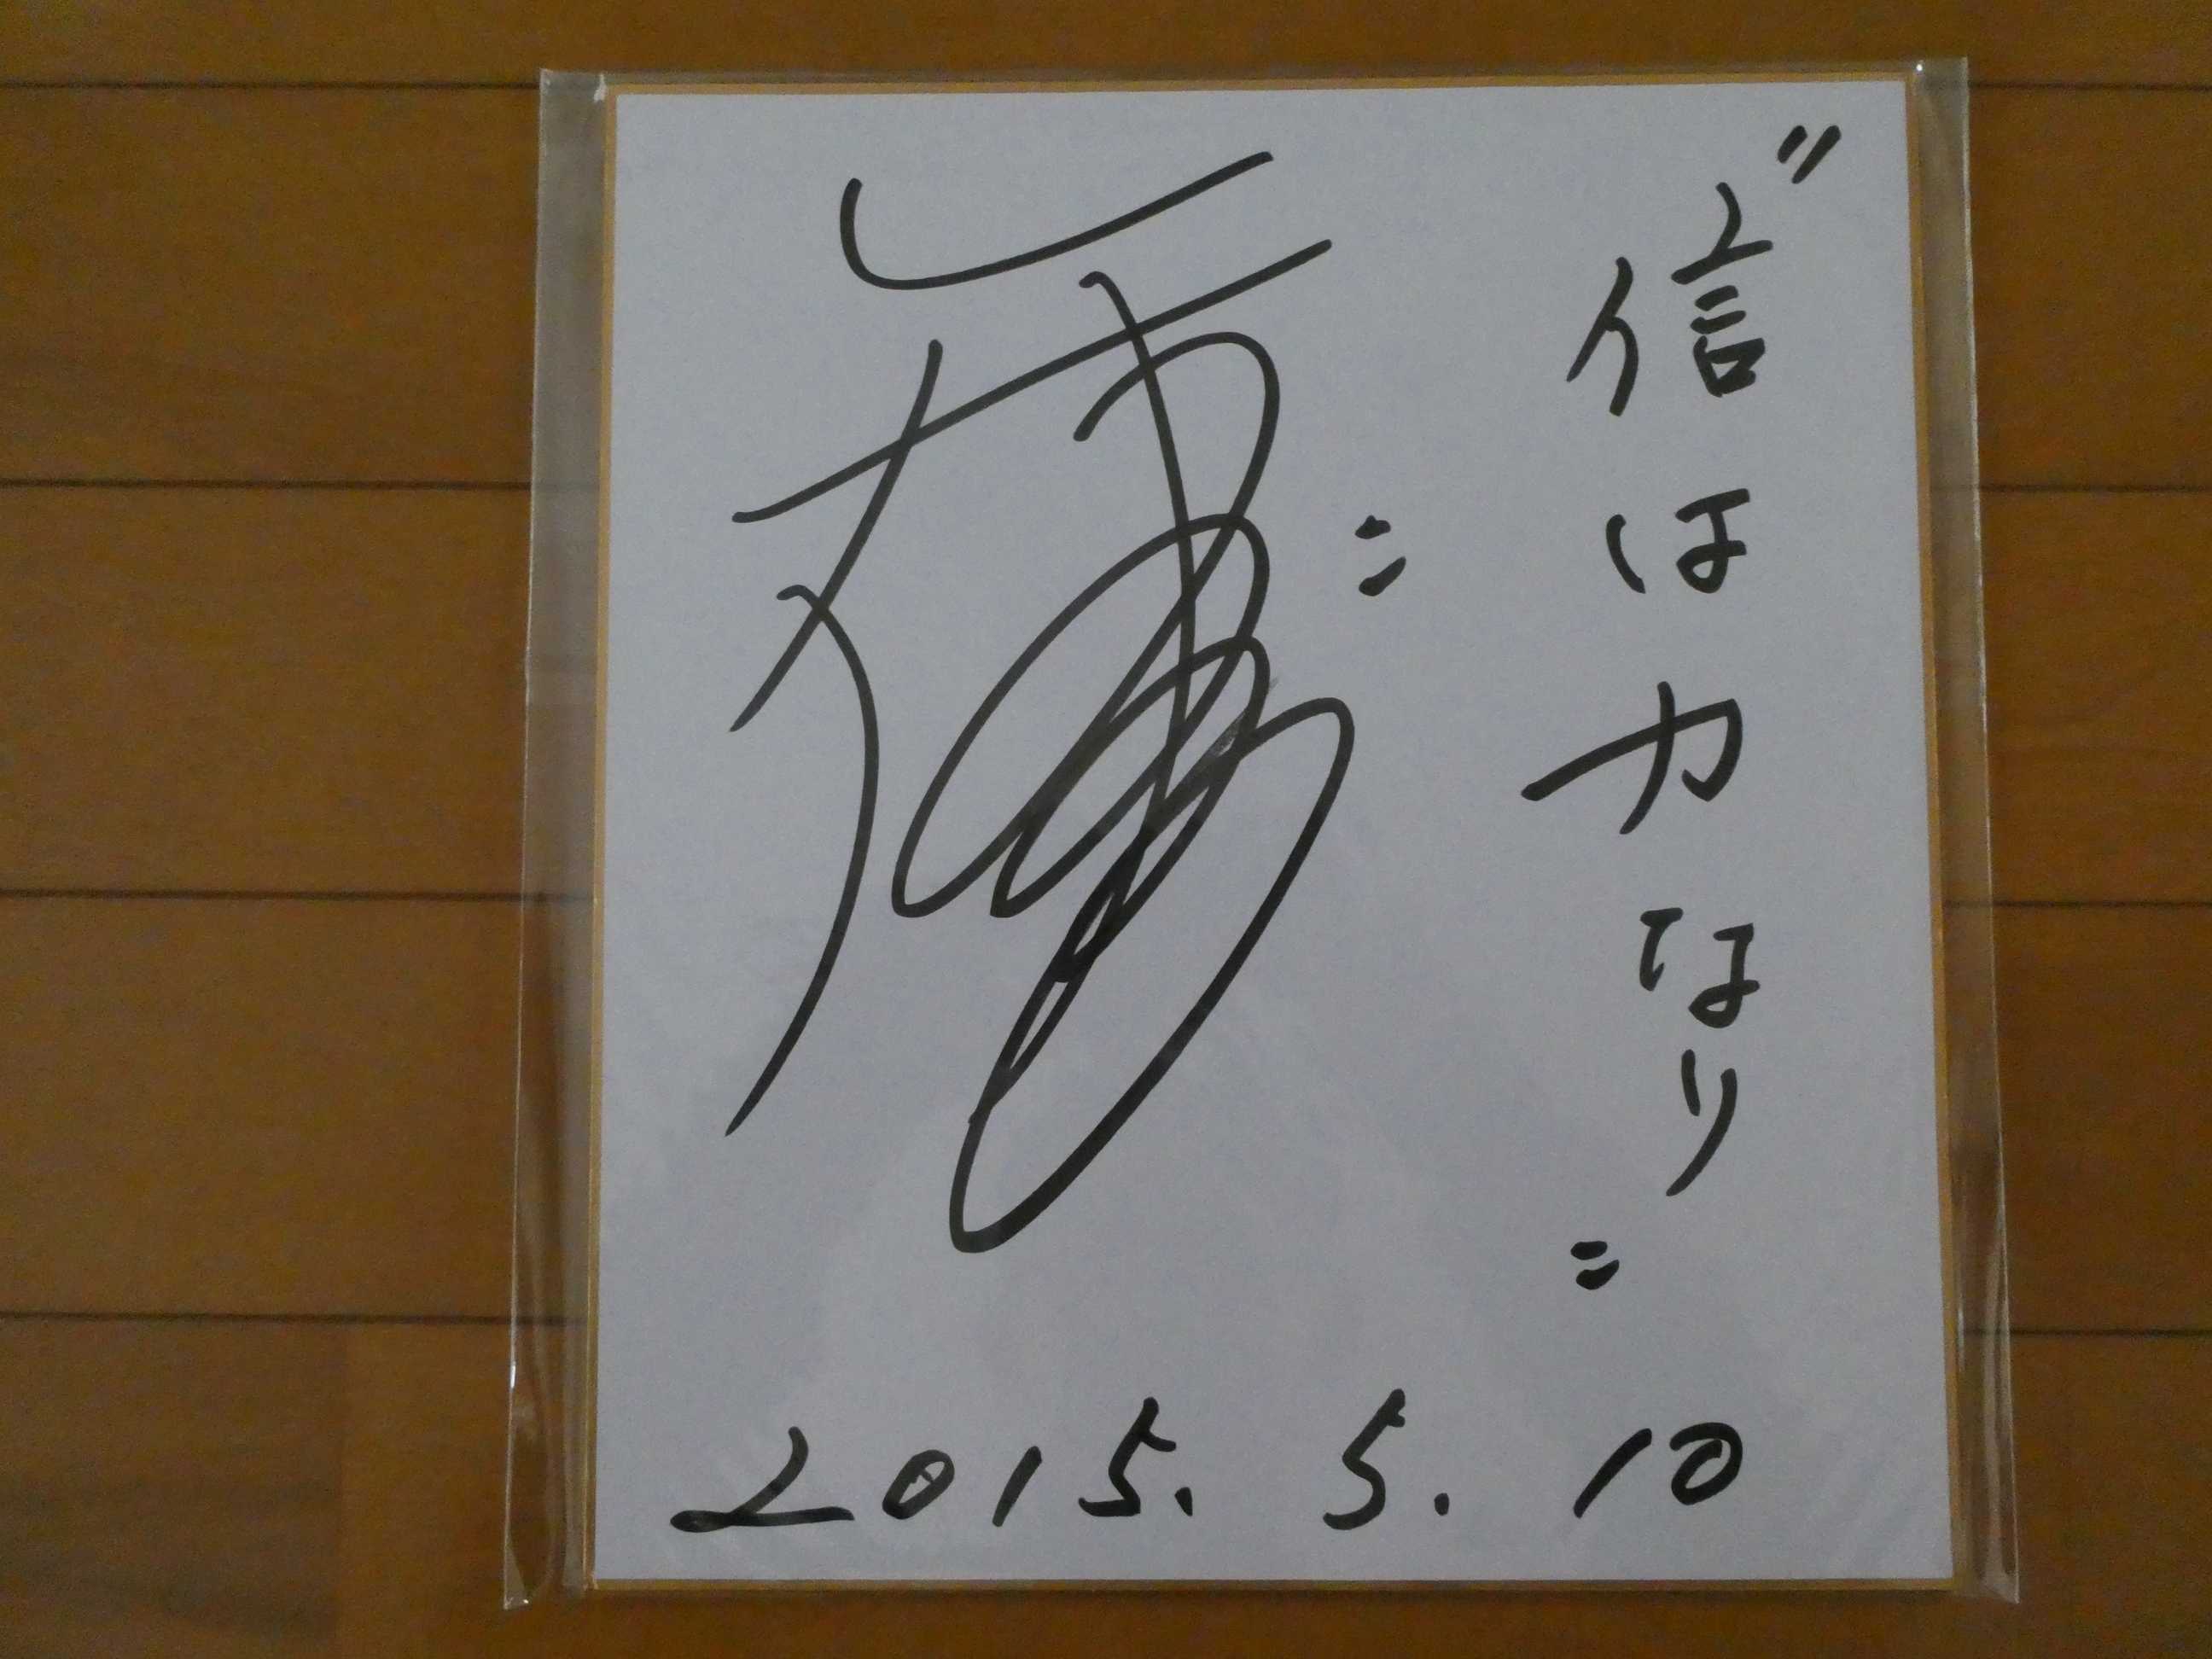 "信は力なり"
2015. 5. 10